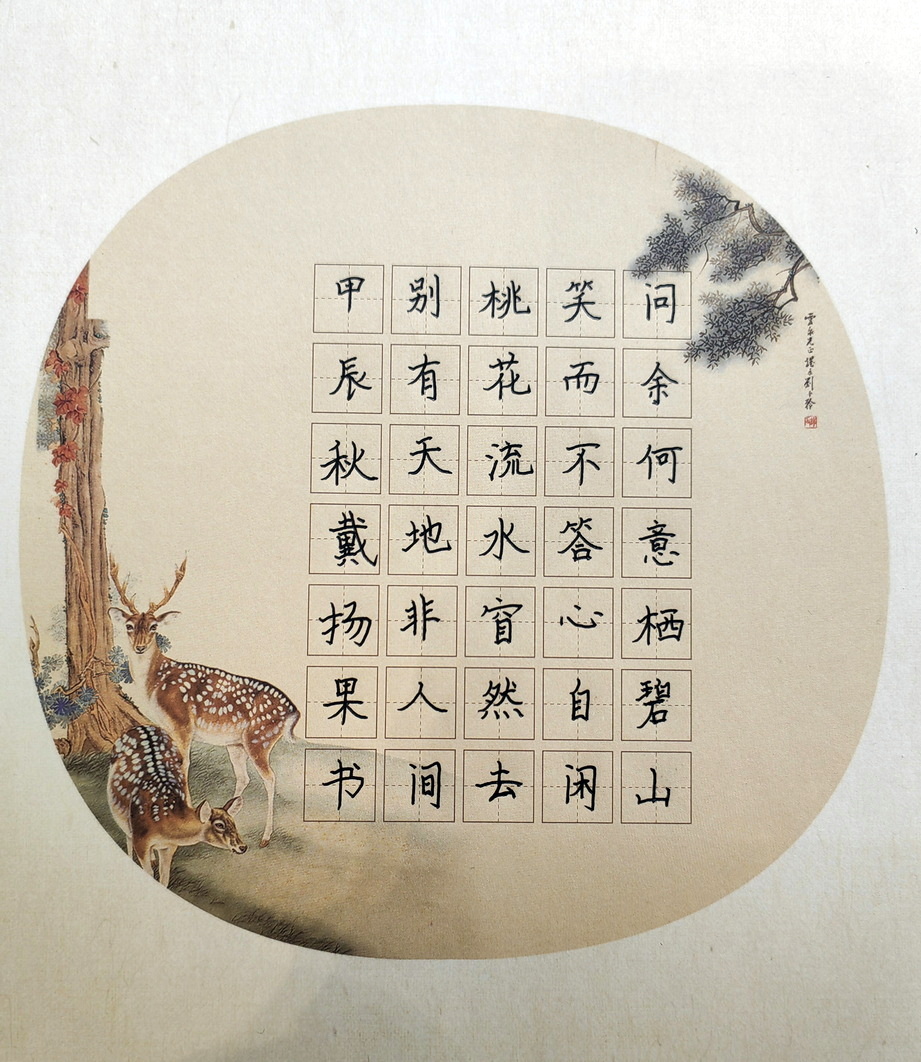 问余何意栖碧山
笑而不答心自闲
桃花流水窅然去
别有天地非人间
甲辰秋戴扬果书